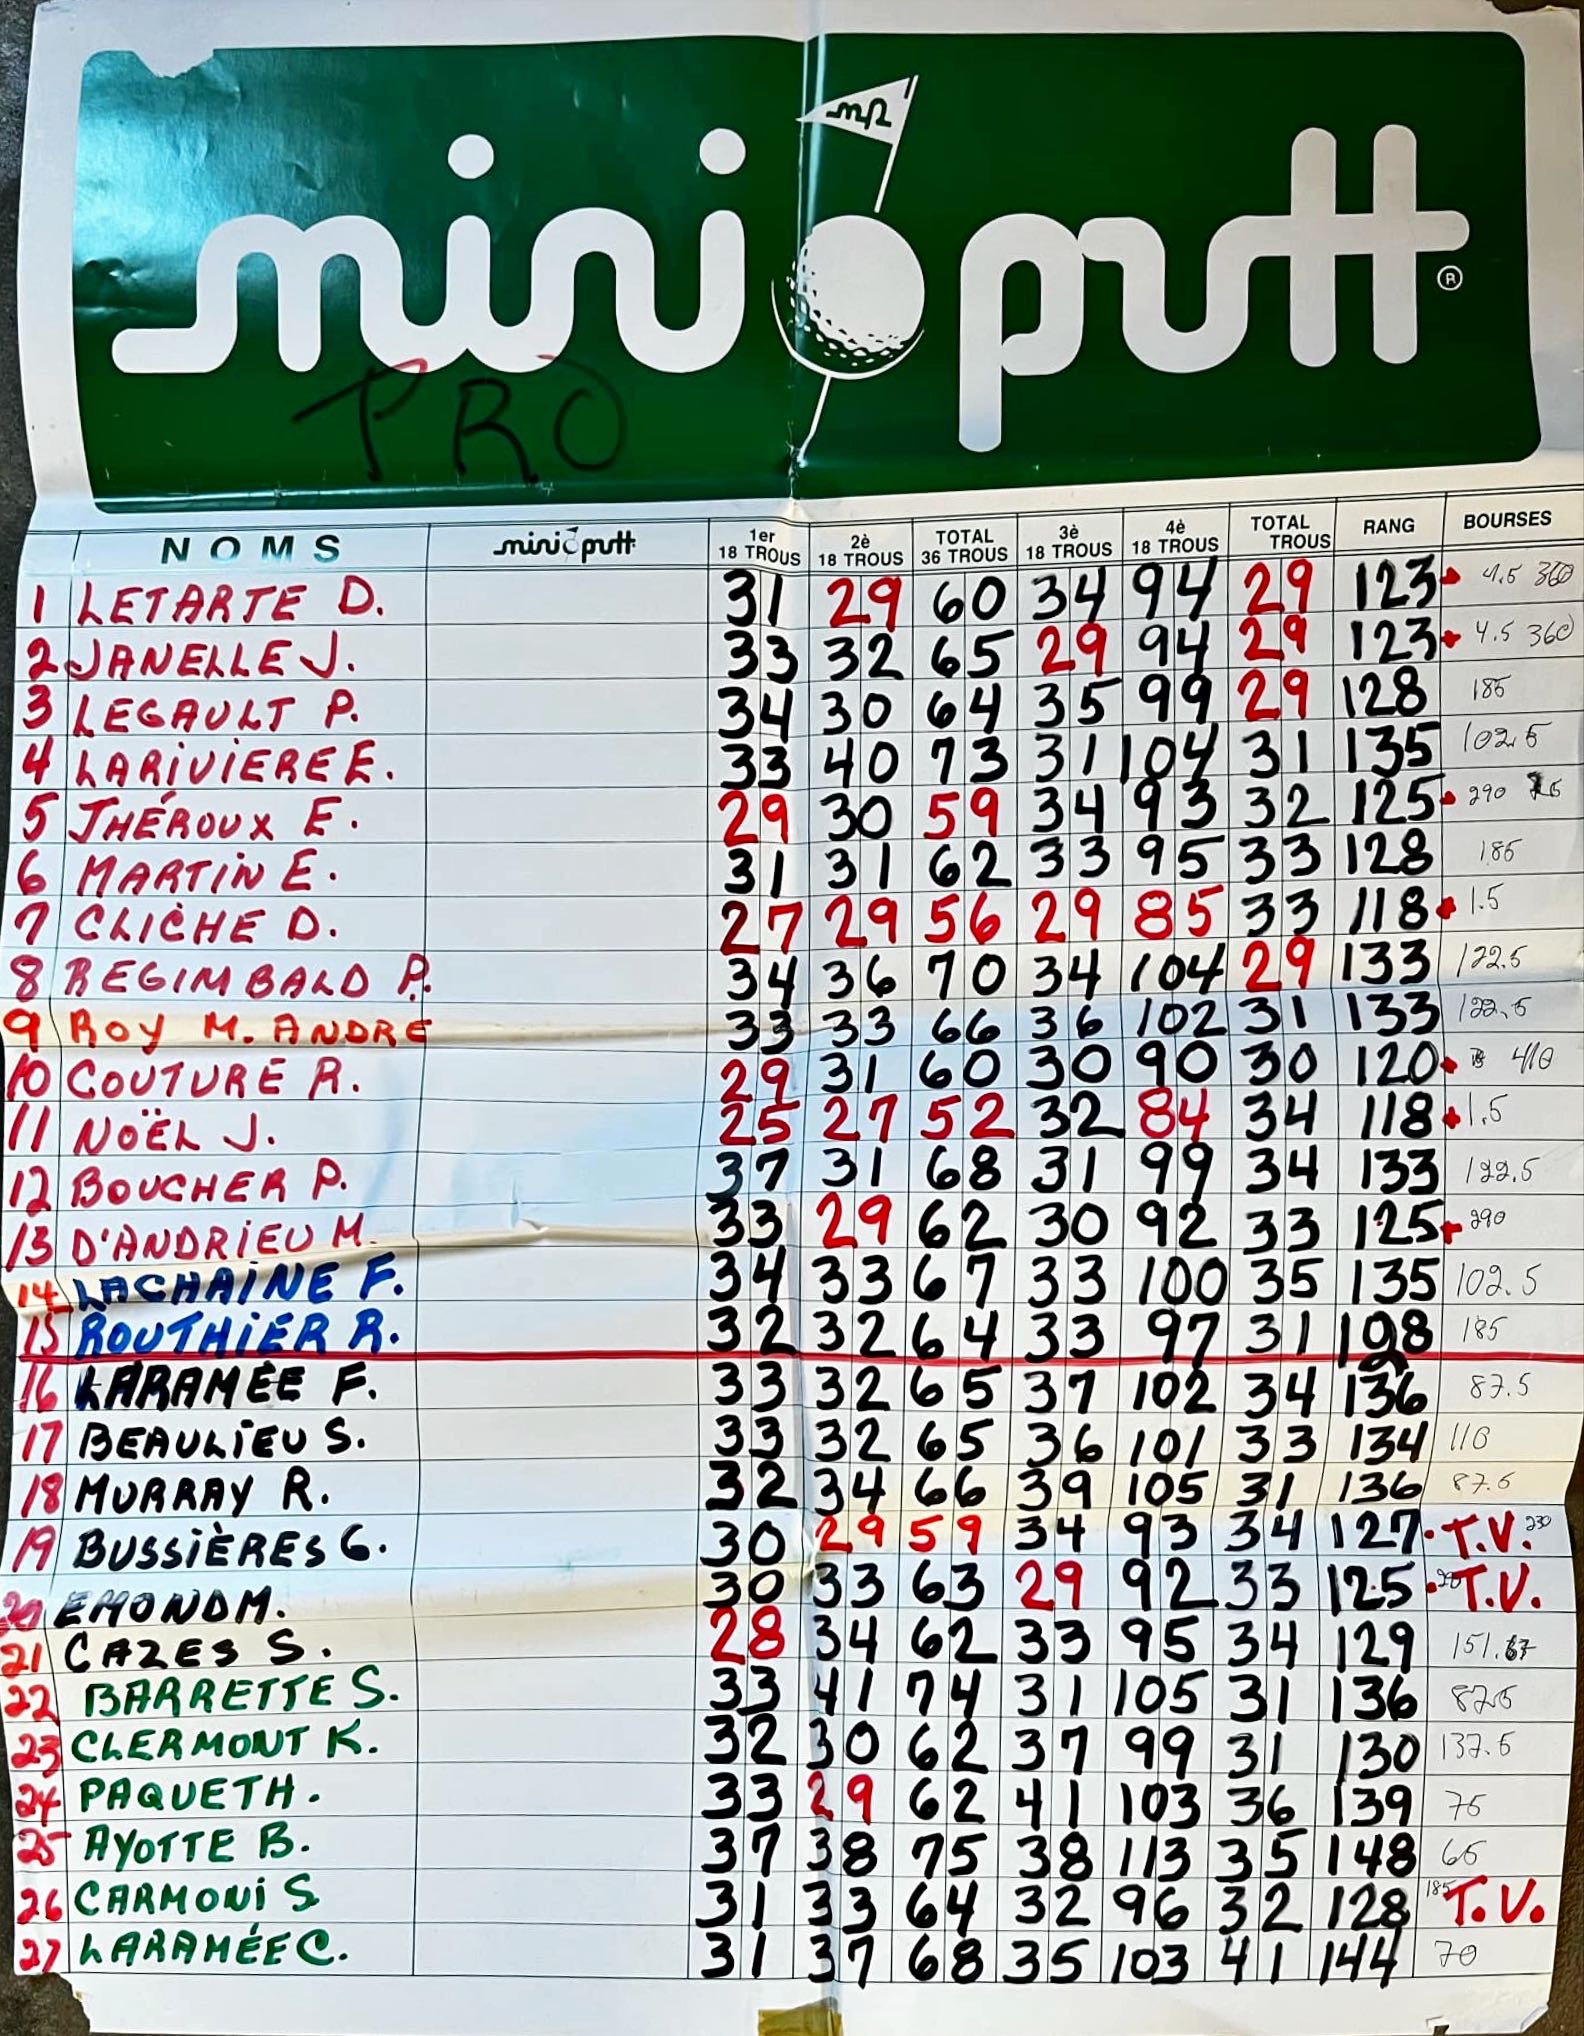 mp
mini putt ®
PRO
NOMS mini putt 1er 18 TROUS 2è 18 TROUS TOTAL 36 TROUS 3è 18 TROUS 4è 18 TROUS TOTAL TROUS RANG BOURSES
1 LETARTE D. 31 29 60 34 94 29 123 4.5 360
2 JANELLE J. 33 32 65 29 94 29 123 4.5 360
3 LEGAULT P. 34 30 64 35 99 29 128 185
4 LARIVIERE E. 33 40 73 31 104 31 135 102.5
5 THÉROUX E. 29 30 59 34 93 32 125 290
6 MARTIN E. 31 31 62 33 95 33 128 185
7 CLICHE D. 27 29 56 29 85 33 118 1.5
8 REGIMBALD P. 34 36 70 34 104 29 133 122.5
9 ROY M. ANDRE 33 33 66 36 102 31 133 122.5
10 COUTURE R. 29 31 60 30 90 30 120 410
11 NOËL J. 25 27 52 32 84 34 118 1.5
12 BOUCHER P. 37 31 68 31 99 34 133 122.5
13 D'ANDRIEU M. 33 29 62 30 92 33 125 290
14 LACHAINE F. 34 33 67 33 100 35 135 102.5
15 ROUTHIER R. 32 32 64 33 97 31 128 185
16 LARAMÉE F. 33 32 65 37 102 34 136 87.5
17 BEAULIEU S. 33 32 65 36 101 33 134 110
18 MURRAY R. 32 34 66 39 105 31 136 87.5
19 BUSSIÈRES G. 30 29 59 34 93 34 127 T.V. 230
20 EMOND M. 30 33 63 29 92 33 125 T.V.
21 CAZES S. 28 34 62 33 95 34 129 151.67
22 BARRETTE S. 33 41 74 31 105 31 136 87.5
23 CLERMONT K. 32 30 62 37 99 31 130 137.5
24 PAQUET H. 33 29 62 41 103 36 139 75
25 AYOTTE B. 37 38 75 38 113 35 148 65
26 CARMONI S 31 33 64 32 96 32 128 185 T.V.
27 LARAMÉE C. 31 37 68 35 103 41 144 70